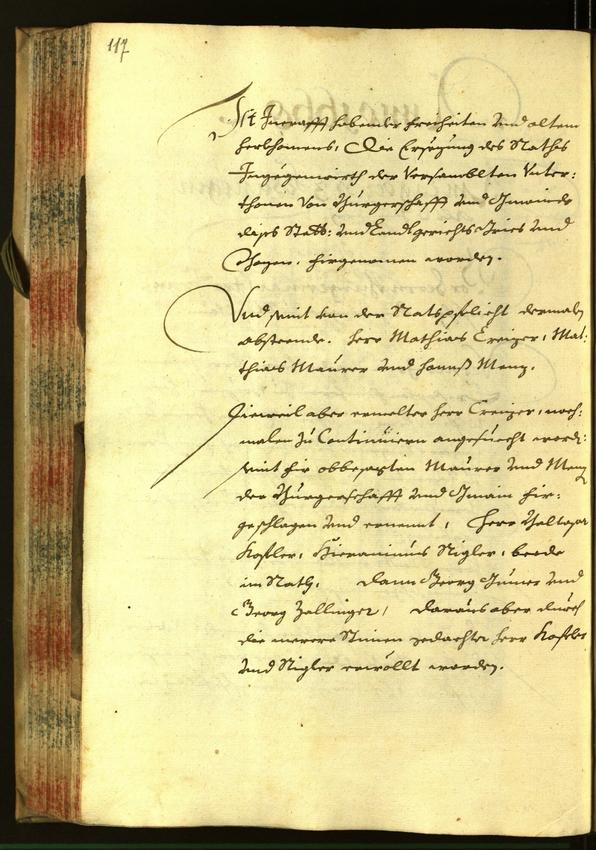 117
Ist Inncrafft habender freiheiten und altem
herkhomens, Die Ersezung des Raths
In gegenwirth der Versambleten Unter:
thonen von Burgerschafft und Gmainde
diss Statt: und Landtgerichts Gries und
Bozen, fürgenomen worden.
Und seint von der Ratspflicht dermalen
abstehende. Herr Mathias Creizer, Mat:
thias Maurer und Hannß Menz.
Dieweil aber ermelter Herr Creizer, noch:
malen zu Continuiern angesuecht worden:
seint für obbesagten Maurer und Menz
der Burgerschafft und Gmain für:
geschlagen und ernennt, Herr Balthasar
Kofler, Hieronimus Rigler, beede
im Rath, dann Georg und
Georg Zallinger, daraus aber durch
die merere Stimen gedachte Herr Kofler
und Rigler erwöllt worden.